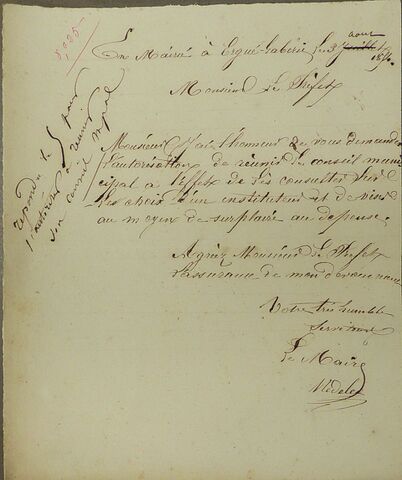 8,025
En Mairie à Ergué-Gaberic, le 3 Juillet aout
Monsieur Le Préfet
Monsieur J'ai l'honneur de vous demander
l'autorisation de réunir le conseil muni
cipal a l'effet de les consulter sur
le choix d'un instituteur et de
au moyen de au depense.
Agréez Monsieur Le Préfet
l'assurance de mon devouement
Votre très humble
Serviteur
Le Maire
repondu le 5 pour
l'autoriser à reunir
son conseil mpal